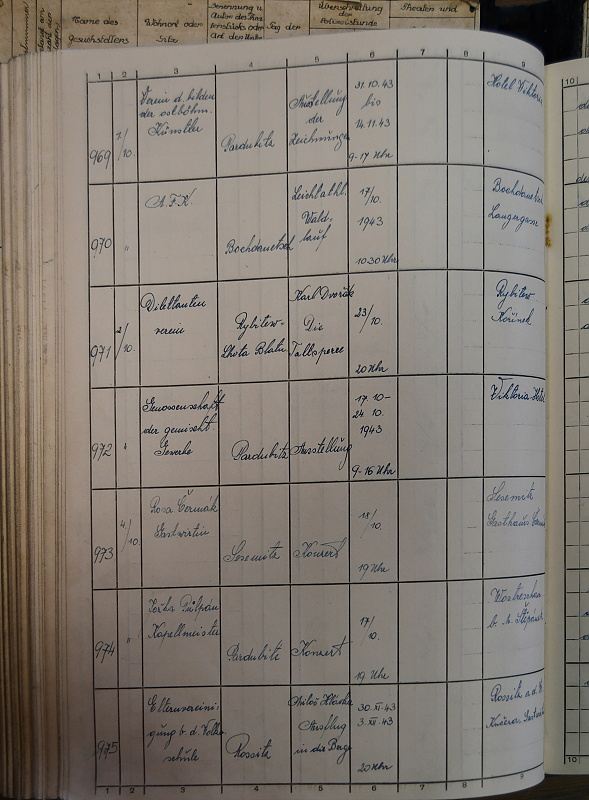 Name des
Gesuchstellers
Wohnort oder
Sitz
Benennung u.
Autor des
Art des
Tag der
Überschreitung
der
Polizeistunde
Theaters und
1 2 3 4 5 6 7 8 9
969
1/10.
Verein d. bilden
der ostböhm.
Künstler
Pardubitz
Ausstellung
der
Zeichnungen
31.10.43
bis
14.11.43
9-17 Uhr
Hotel Viktoria
970
"
A.F.K.
Bochdanetsch
Leichtathl.
Wald-
lauf
17/10.
1943
10 30 Uhr
Bochdanetsch
Langergasse
971
2/10.
Dilettanten
verein
Rybitew-
Lhota Blatn
Karl Dvořák
Die
Tallsperre
23/10.
20 Uhr
Rybitew
Kořínek
972
"
Genossenschaft
der gemischt.
Gewerbe
Pardubitz
Ausstellung
17. 10-
24 10.
1943
9-16 Uhr
Viktoria Hotel
973
4/10.
Rosa Čermák
Gastwirtin
Sesemitz
Konzert
18/10.
19 Uhr
Sesemitz
Gasthaus
974
"
Kapellmeister
Pardubitz
Konzert
17/10.
19 Uhr
b. H. Štěpánek
975
Elternvereini
gung b. d. Volks
schule
Rossitz
Ausflug
in die Berge
30. XI-43
3. XII. 43
20 Uhr
Rossitz a.d.
Kučera
1 2 3 4 5 6 7 8 9
10
10